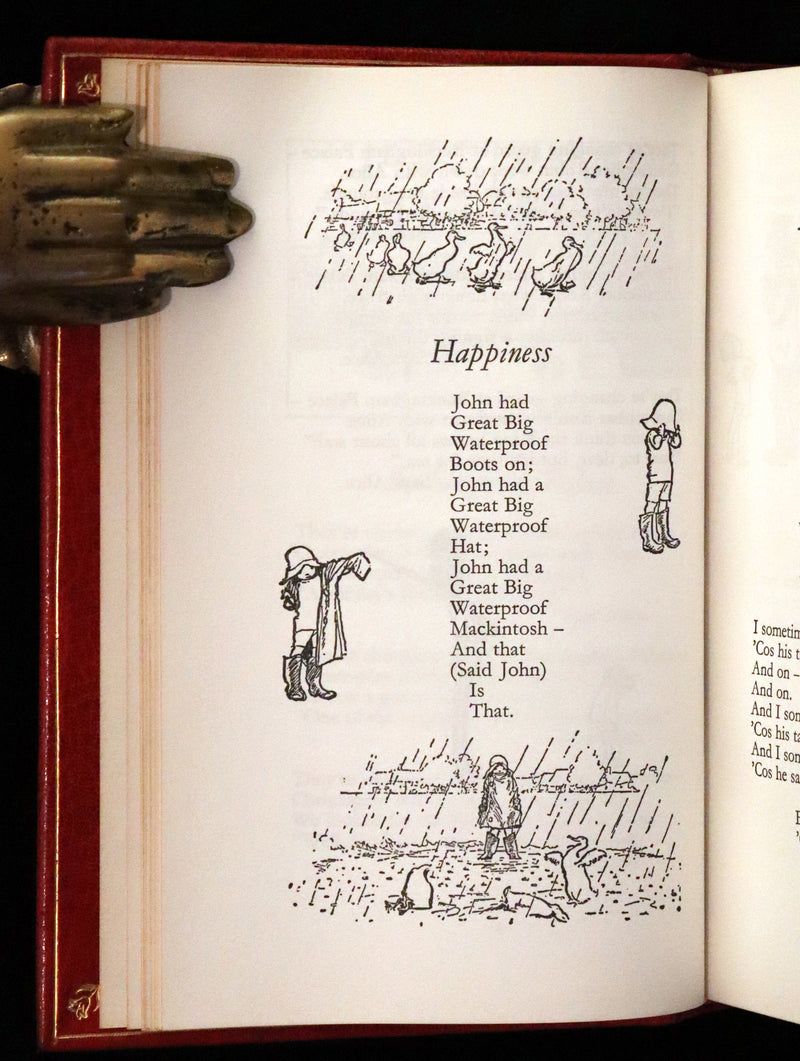 Happiness
John had
Great Big
Waterproof
Boots on;
John had a
Great Big
Waterproof
Hat;
John had a
Great Big
Waterproof
Mackintosh –
And that
(Said John)
Is
That.
I
'Cos his
And on –
And on.
And I
'Cos his
And I
'Cos he